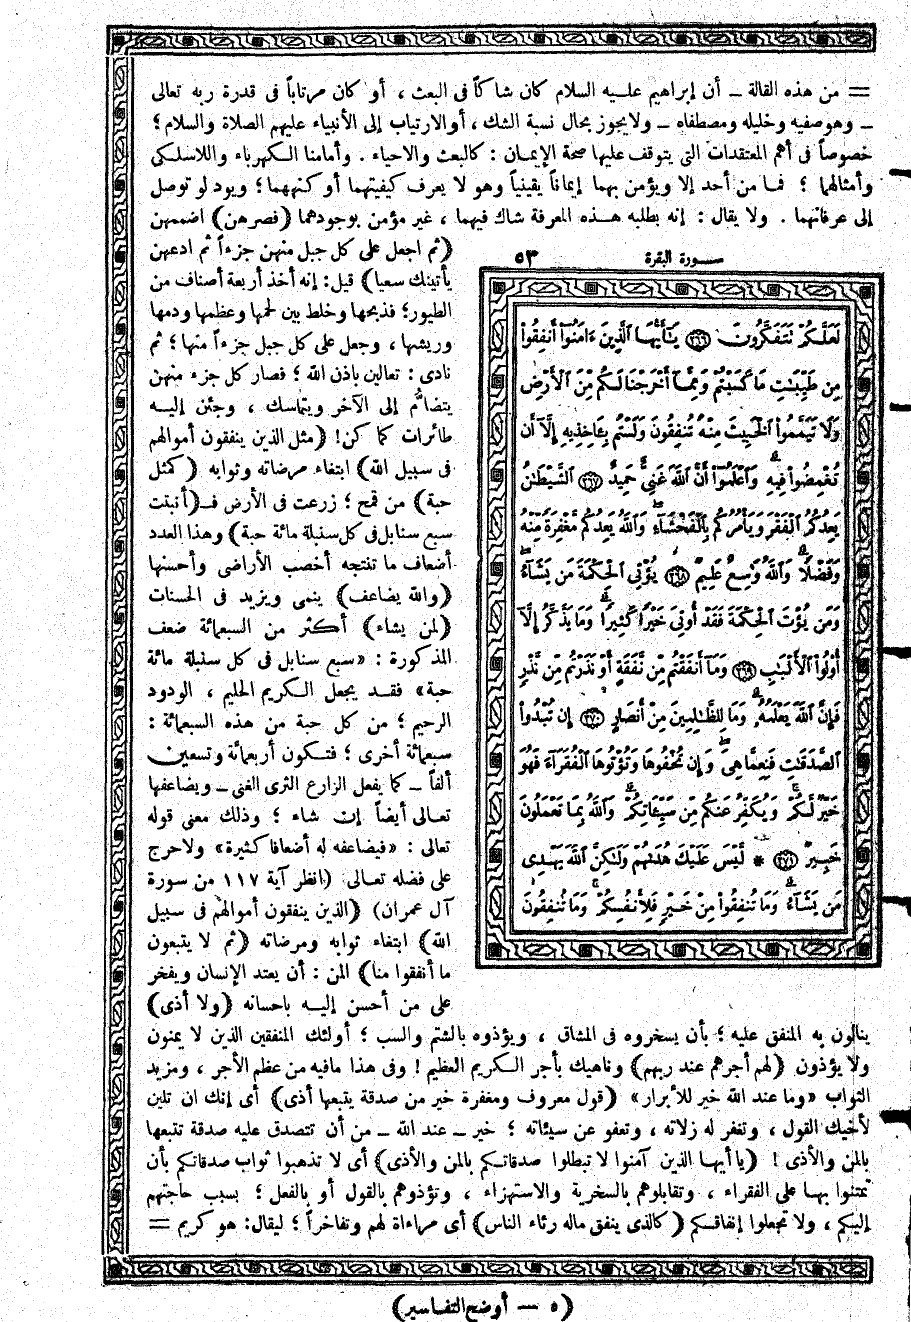 = من هذه القالة ـ أن إبراهيم عليه السلام كان شاكاً فى البعث ، أو كان مرتاباً فى قدرة ربه تعالى
ـ وهو صفيه وخليله ومصطفاه ـ ولا يجوز بحال نسبة الشك ، أو الارتياب إلى الأنبياء عليهم الصلاة والسلام ؛
خصوصاً فى أهم المعتقدات التى يتوقف عليها صحة الإيمان : كالبعث والاحياء . وأمامنا الكهرباء واللاسلكى
وأمثالهما ؛ فما من أحد إلا ويؤمن بهما إيماناً يقينياً وهو لا يعرف كيفيتهما أو كنههما ؛ ويود لو توصل
إلى عرفانهما . ولا يقال : إنه بطلبه هذه المعرفة شاك فيهما ، غير مؤمن بوجودهما (فصرهن) اضممهن
(ثم اجعل على كل جبل منهن جزءاً ثم ادعهن
يأتينك سعيا) قيل : إنه أخذ أربعة أصناف من
الطيور ؛ فذبحها وخلط بين لحمها وعظمها ودمها
وريشها ، وجعل على كل جبل جزءاً منها ؛ ثم
نادى : تعالين باذن الله ؛ فصار كل جزء منهن
يتضامُّ إلى الآخر ويتماسك ، وجئن إليه
طائرات كما كن ! (مثل الذين ينفقون أموالهم
فى سبيل الله) ابتغاء مرضاته وثوابه (كمثل
حبة) من قمح ؛ زرعت فى الأرض فـ(أنبتت
سبع سنابل فى كل سنبلة مائة حبة) وهذا العدد
أضعاف ما تنتجه أخصب الأراضى وأحسنها
(والله يضاعف) ينمى ويزيد فى الحسنات
(لمن يشاء) أكثر من السبعمائة ضعف
المذكورة : «سبع سنابل فى كل سنبلة مائة
حبة» فقد يجعل الكريم الحليم ، الودود
الرحيم ؛ من كل حبة من هذه السبعمائة :
سبعمائة أخرى ؛ فتكون أربعمائة وتسعين
ألفاً ـ كما يفعل الزارع الثرى الغنى ـ ويضاعفها
تعالى أيضاً إن شاء ؛ وذلك معنى قوله
تعالى : «فيضاعفه له أضعافا كثيرة» ولا حرج
على فضله تعالى (انظر آية ١١٧ من سورة
آل عمران) (الذين ينفقون أموالهم فى سبيل
الله) ابتغاء ثوابه ومرضاته (ثم لا يتبعون
ما أنفقوا منا) المن : أن يعتد الإنسان ويفخر
على من أحسن إليه باحسانه (ولا أذى)
سورة البقرة ٥٣
لَعَلَّكُمْ تَتَفَكَّرُونَ ٢٦٦ يَٰٓأَيُّهَا ٱلَّذِينَ ءَامَنُوٓا۟ أَنفِقُوا۟
مِن طَيِّبَٰتِ مَا كَسَبْتُمْ وَمِمَّآ أَخْرَجْنَا لَكُم مِّنَ ٱلْأَرْضِ
وَلَا تَيَمَّمُوا۟ ٱلْخَبِيثَ مِنْهُ تُنفِقُونَ وَلَسْتُم بِـَٔاخِذِيهِ إِلَّآ أَن
تُغْمِضُوا۟ فِيهِ وَٱعْلَمُوٓا۟ أَنَّ ٱللَّهَ غَنِىٌّ حَمِيدٌ ٢٦٧ ٱلشَّيْطَٰنُ
يَعِدُكُمُ ٱلْفَقْرَ وَيَأْمُرُكُم بِٱلْفَحْشَآءِ وَٱللَّهُ يَعِدُكُم مَّغْفِرَةً مِّنْهُ
وَفَضْلًا وَٱللَّهُ وَٰسِعٌ عَلِيمٌ ٢٦٨ يُؤْتِى ٱلْحِكْمَةَ مَن يَشَآءُ
وَمَن يُؤْتَ ٱلْحِكْمَةَ فَقَدْ أُوتِىَ خَيْرًا كَثِيرًا وَمَا يَذَّكَّرُ إِلَّآ
أُو۟لُوا۟ ٱلْأَلْبَٰبِ ٢٦٩ وَمَآ أَنفَقْتُم مِّن نَّفَقَةٍ أَوْ نَذَرْتُم مِّن نَّذْرٍ
فَإِنَّ ٱللَّهَ يَعْلَمُهُۥ وَمَا لِلظَّٰلِمِينَ مِنْ أَنصَارٍ ٢٧٠ إِن تُبْدُوا۟
ٱلصَّدَقَٰتِ فَنِعِمَّا هِىَ وَإِن تُخْفُوهَا وَتُؤْتُوهَا ٱلْفُقَرَآءَ فَهُوَ
خَيْرٌ لَّكُمْ وَيُكَفِّرُ عَنكُم مِّن سَيِّـَٔاتِكُمْ وَٱللَّهُ بِمَا تَعْمَلُونَ
خَبِيرٌ ٢٧١ * لَّيْسَ عَلَيْكَ هُدَىٰهُمْ وَلَٰكِنَّ ٱللَّهَ يَهْدِى
مَن يَشَآءُ وَمَا تُنفِقُوا۟ مِنْ خَيْرٍ فَلِأَنفُسِكُمْ وَمَا تُنفِقُونَ
ينالون به المنفق عليه ؛ بأن يسخروه فى المشاق ، ويؤذوه بالشتم والسب ؛ أولئك المنفقين الذين لا يمنون
ولا يؤذون (لهم أجرهم عند ربهم) وناهيك بأجر الكريم العظيم ! وفى هذا مافيه من عظم الأجر ، ومزيد
الثواب «وما عند الله خير للأبرار» (قول معروف ومغفرة خير من صدقة يتبعها أذى) أى إنك ان تلين
لأخيك القول ، وتغفر له زلاته ، وتعفو عن سيئاته ؛ خير ـ عند الله ـ من أن تتصدق عليه صدقة تتبعها
بالمن والأذى ! (يا أيها الذين آمنوا لا تبطلوا صدقاتكم بالمن والأذى) أى لا تذهبوا ثواب صدقاتكم بأن
تمتنوا بها على الفقراء ، وتقابلوهم بالسخرية والاستهزاء ، وتؤذوهم بالقول أو بالفعل ؛ بسبب حاجتهم
إليكم ، ولا تجعلوا إنفاقكم (كالذى ينفق ماله رئاء الناس) أى مراءاة لهم وتفاخراً ؛ ليقال : هو كريم =
(٥ ـ أوضح التفاسير)